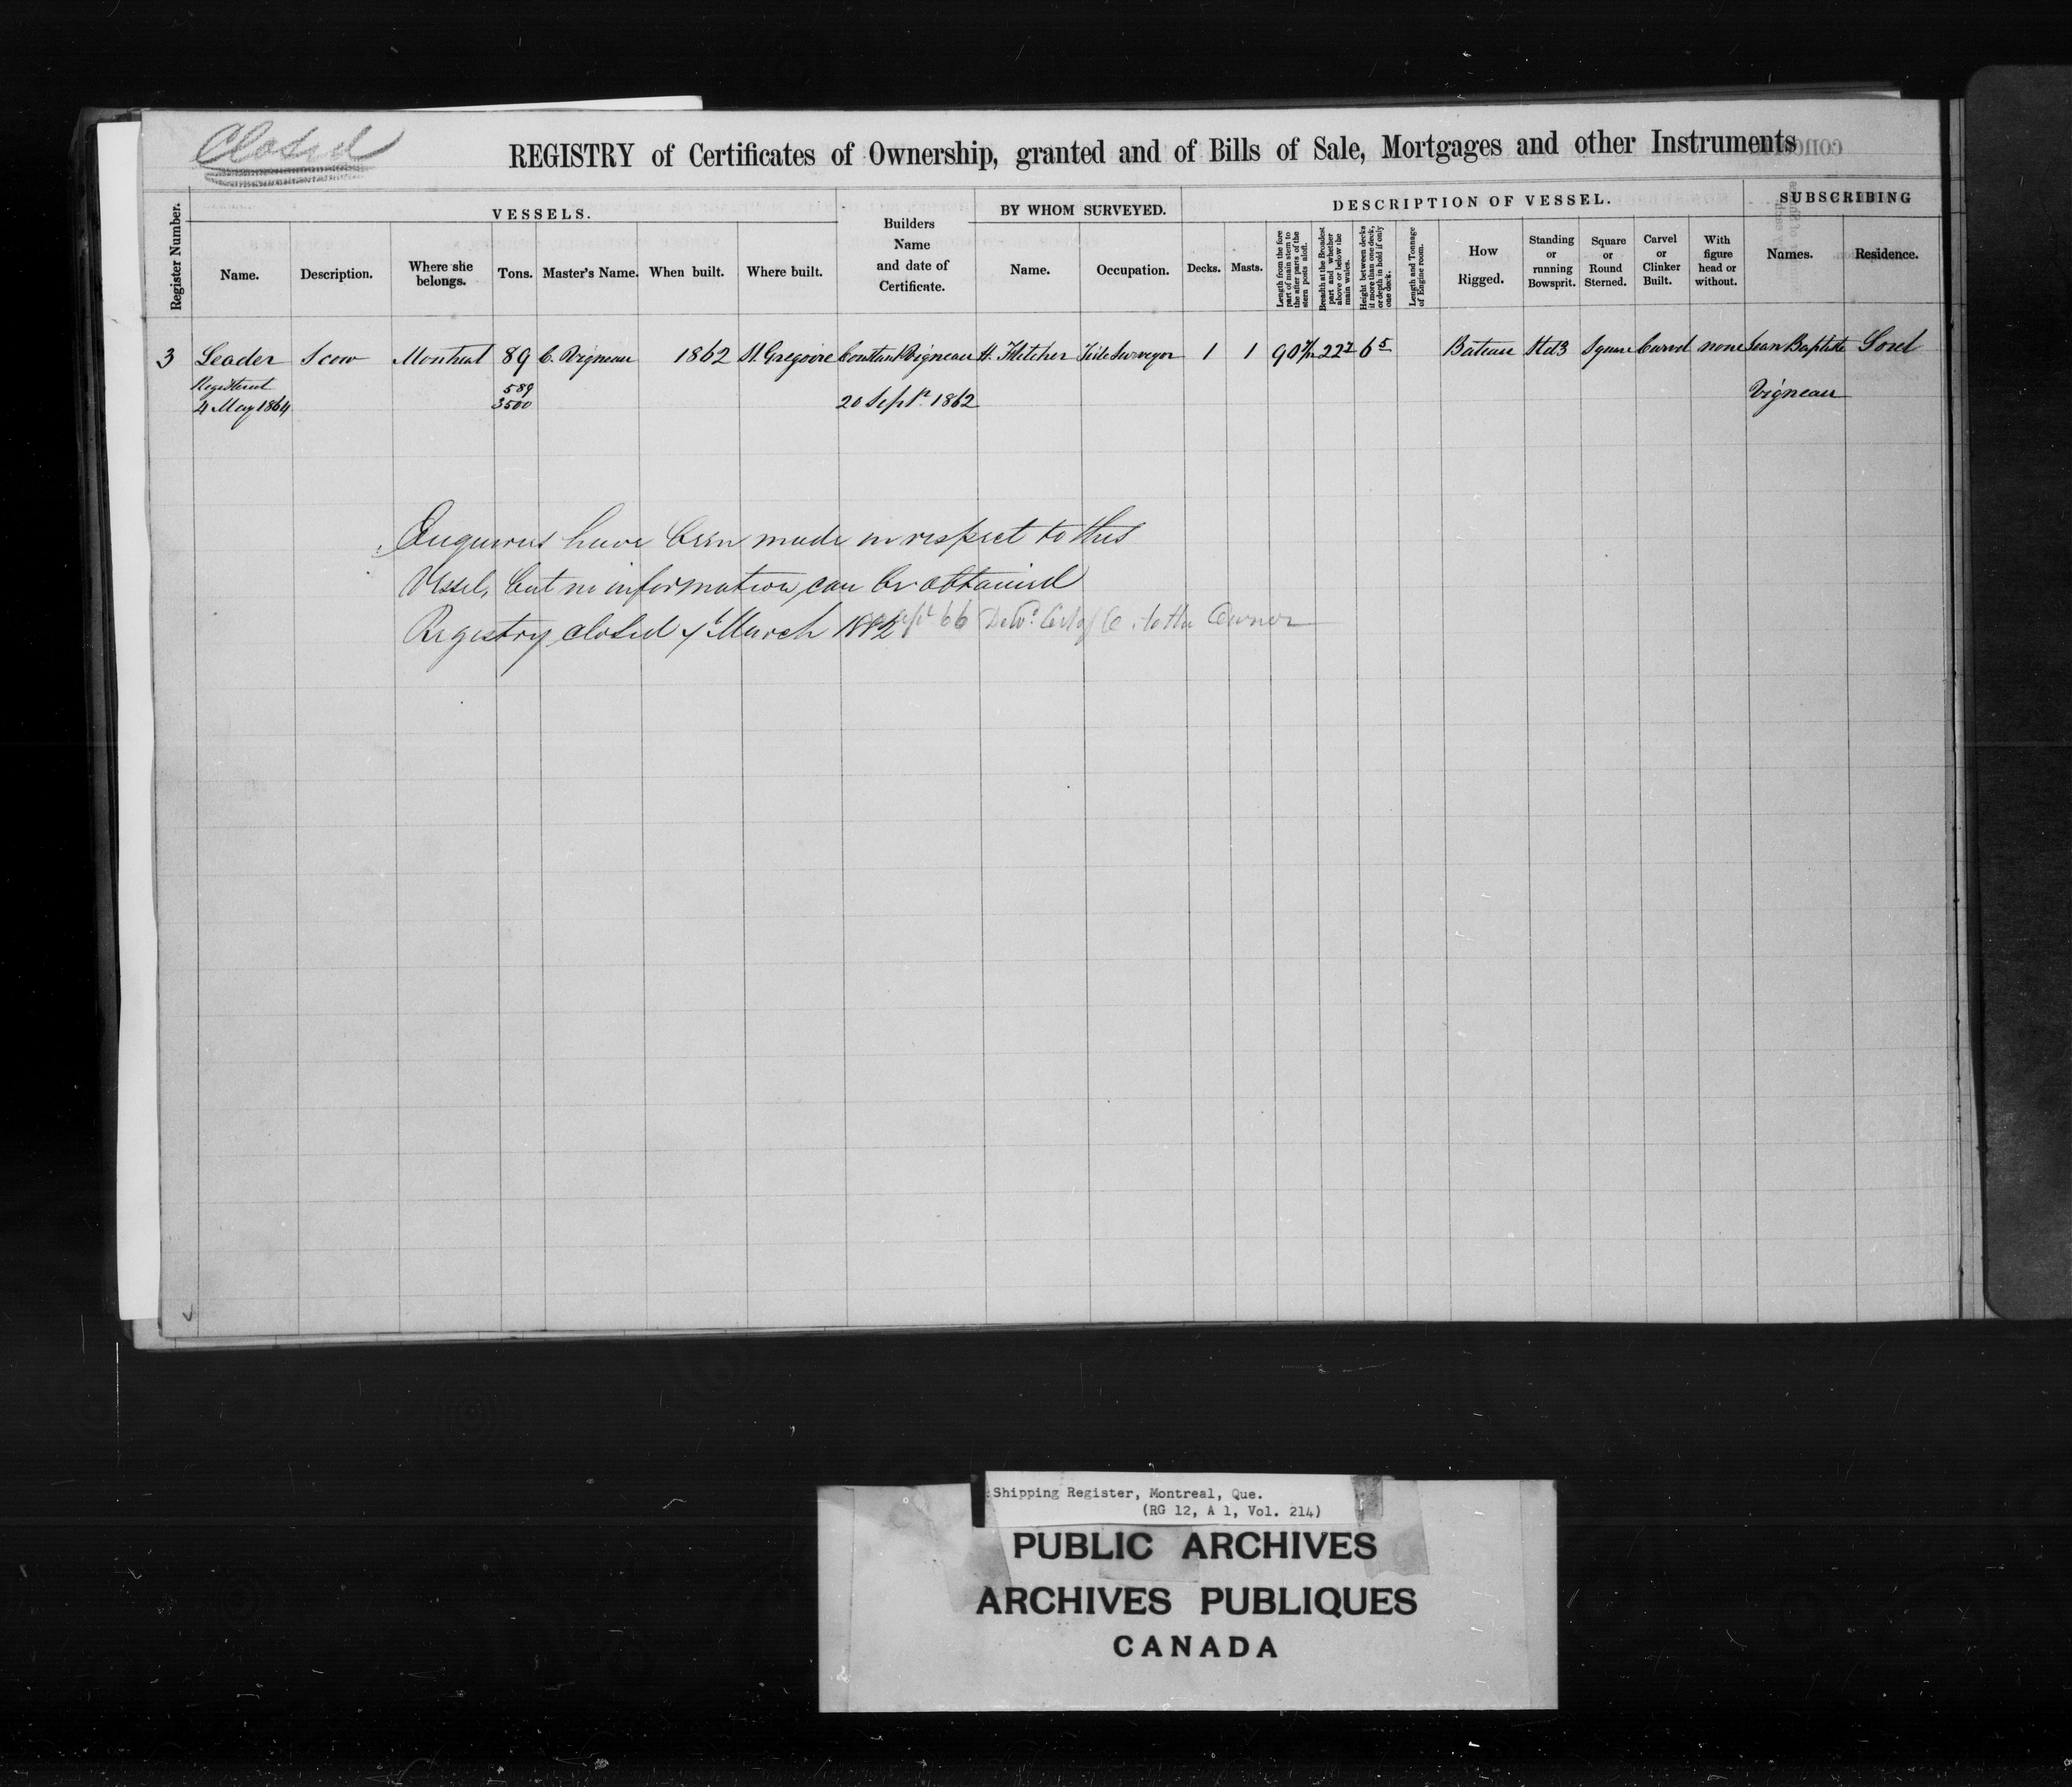 Closed
REGISTRY of Certificates of Ownership, granted and of Bills of Sale, Mortgages and other Instruments
Register Number.
VESSELS.
Name.
Description.
Where she belongs.
Tons.
Master's Name.
When built.
Where built.
Builders Name and date of Certificate.
BY WHOM SURVEYED.
Name.
Occupation.
DESCRIPTION OF VESSEL.
Decks.
Masts.
Length from the fore part of main stem to the after parts of the stern posts aloft.
Breadth at the Broadest part and whether above or below the main wales.
Height between decks if more than one deck, or depth in hold if only one deck.
Length and Tonnage of Engine room.
How Rigged.
Standing or running Bowsprit.
Square or Round Sterned.
Carvel or Clinker Built.
With figure head or without.
SUBSCRIBING
Names.
Residence.
3 Leader Scow Montreal 89 C. Vigneau 1862 St. Gregoire Constant Vigneau H. Fletcher Tide Surveyor 1 1 90 22 6 5 Bateau Square Carvel none Jean Baptiste Sorel
Registered 589 Vigneau
4 May 1864 3500 20 Sept. 1862
Enquiries have been made in respect to this
Vessel, but no information can be obtained
Registry closed March 1882 66 to the Owner
Shipping Register, Montreal, Que.
(RG 12, A 1, Vol. 214)
PUBLIC ARCHIVES
ARCHIVES PUBLIQUES
CANADA